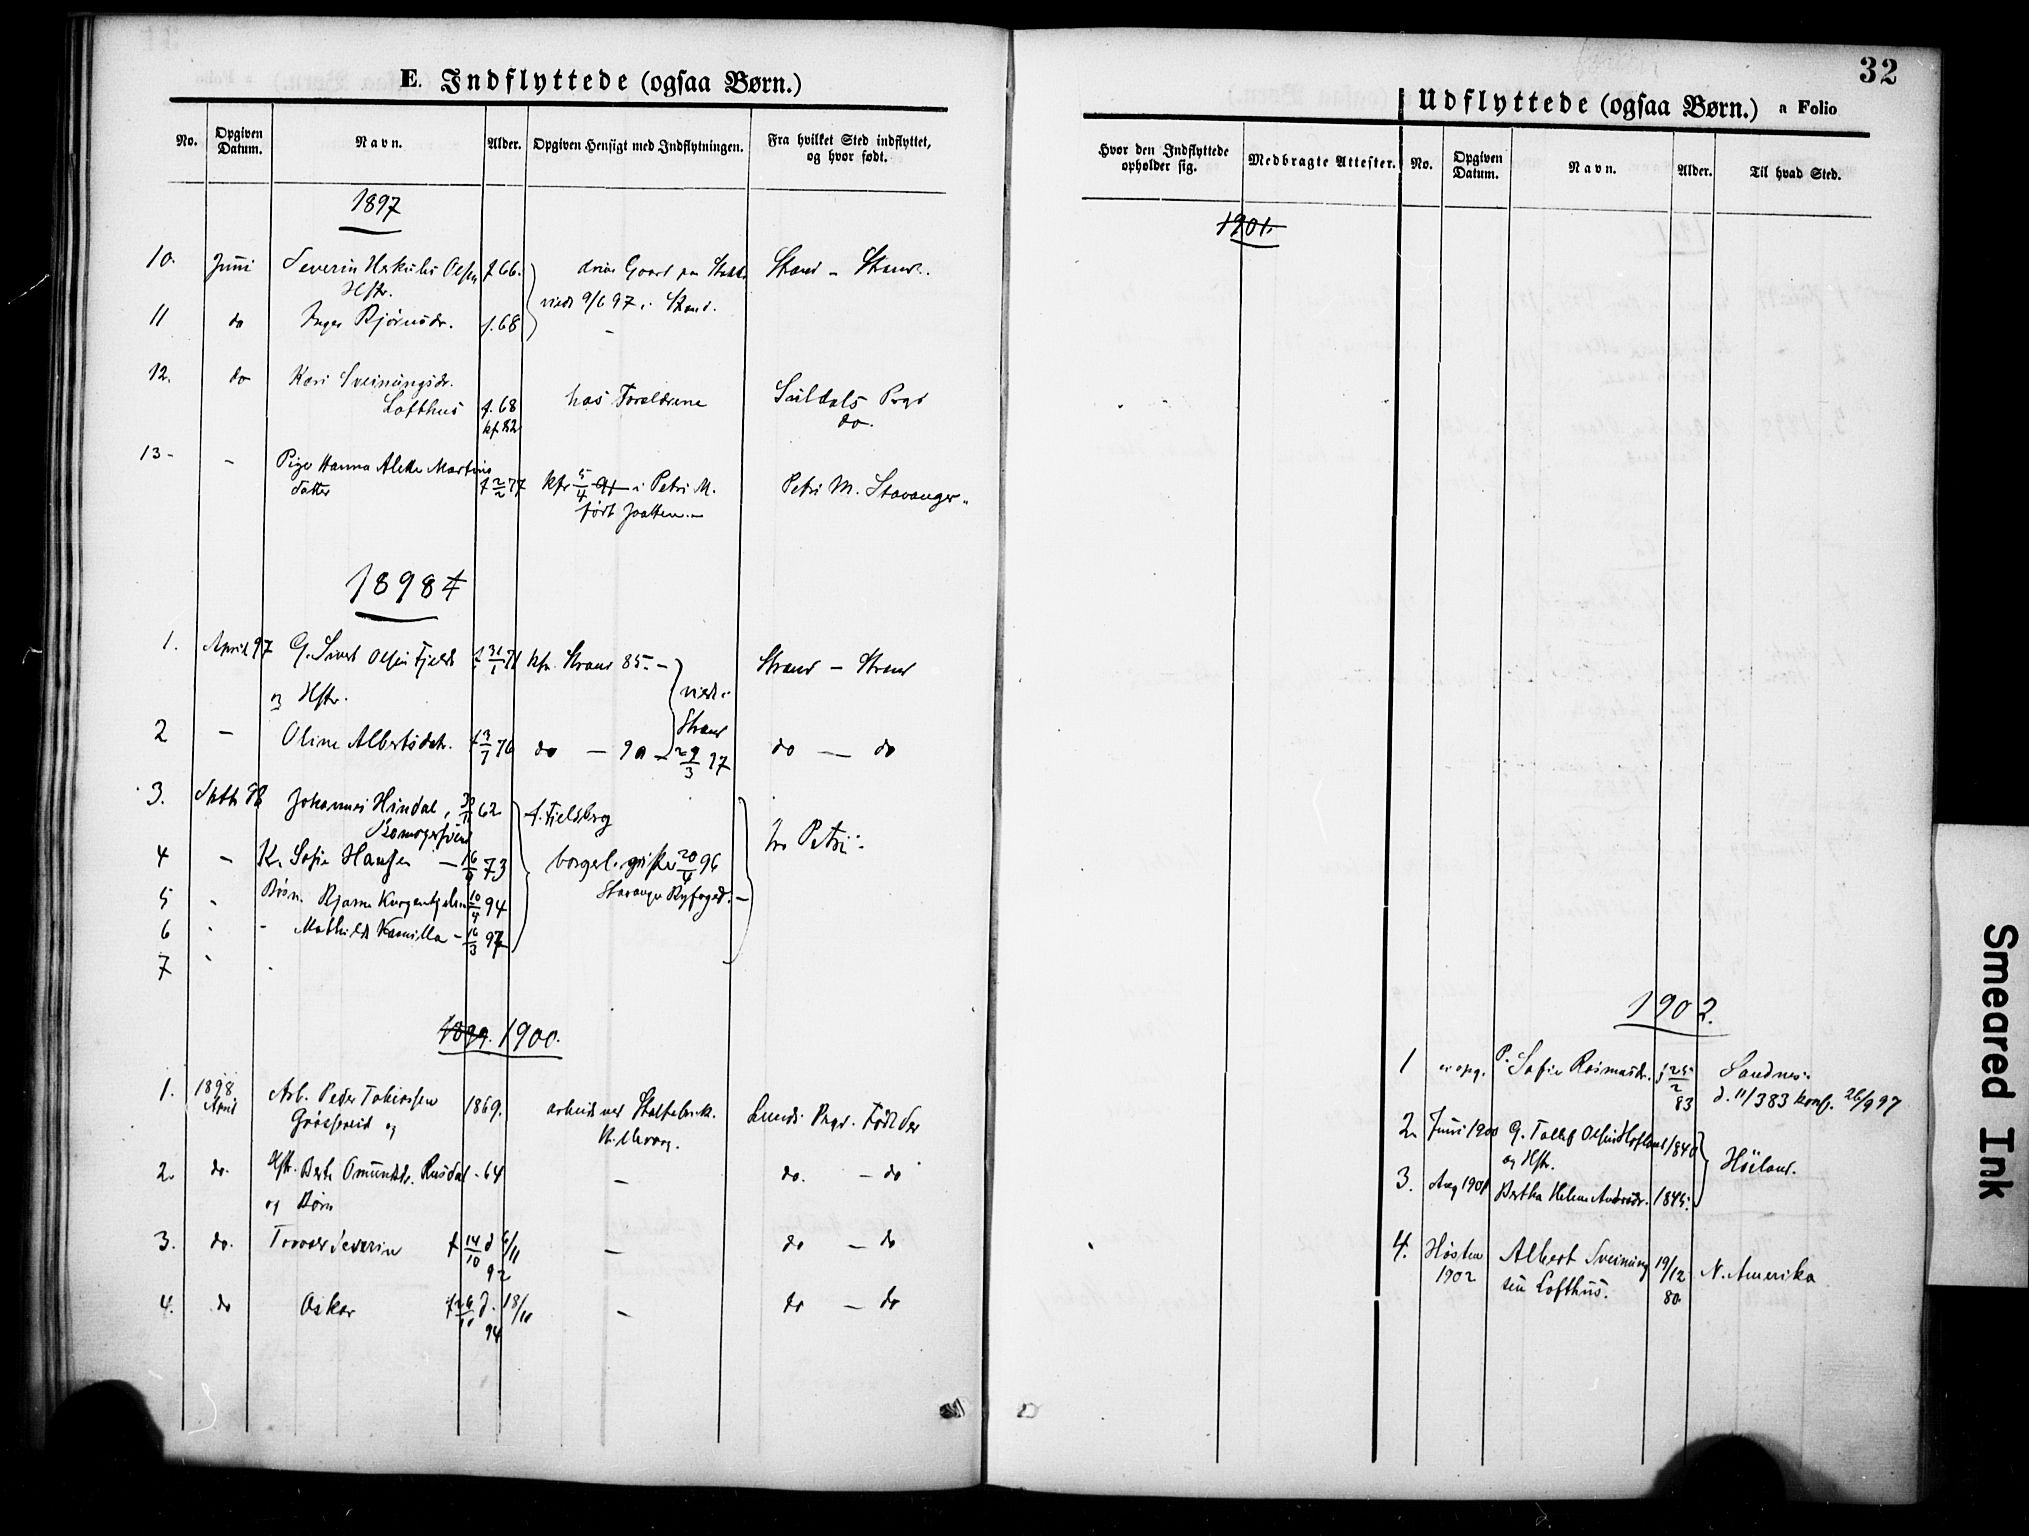 32
E. Indflyttede (ogsaa Børn.)
Udflyttede (ogsaa Børn.) a Folio
No. Opgiven Datum. Navn. Alder. Opgiven Hensigt med Indflytningen. Fra hvilket Sted indflyttet, og hvor født.
Hvor den Indflyttede opholder sig. Medbragte Attester. No. Opgiven Datum. Navn. Alder. Til hvad Sted.
1897
10. Juni Severin Olsen f 66. Gaard paa Strand - Strand.
Hstr. viede 9/6 97 i Strand.
11 do Inger Bjørnsdr. f. 68 -
12. do Kari Sveinungsdr.
Lofthus f. 68 hos Forældrene Suldals Prgd
kf. 82 do.
13- - Pige Hanna Martins
datter f 2/2 77 kfr 5/4 91 i Petri M. Petri M. Stavanger
født Jaatten.-
1898
1. April 97 G. Sivert Olsen Fjeld f 31/1 71 kfr. Strand 85.- Strand - Strand
og Hstr. viede i
Strand
2 - Oline Albertsdatr. f 3/7 76 do - 90 - 29/3 97 do - do
3. Septb 98 Johannes Hindal, 30/11 62 f. Fjelsberg fra Petri
4 - K. Sofie Hansen - 16/9 73 borgerl. 20/4 96
Stavanger Byfoged.-
5 - Børn. Bjarne 10/4 94
6 - - Mathilde Kamilla - 16/3 97
7
1899. 1900.
1. 1898 April Arb. Peder Tobiassen 1869. arbeide ved Lunds Prgd. Født der
og
2. do. Hstr. Berte Omundsdr. Rusdal - 64 - do. - do
og Børn
3. do. Severin f 14/10 d 6/11 92 - do - do
4. do Oskar f 26/10 d. 18/11 94 - do - do
1901.
1902.
1 P. Sofie Rasmusdr. f 25/2 83 Sandnes
d. 11/3 83 konf. 26/9 97
2. Juni 1900 G. Tollef Olsen 1840 Høiland.
og Hstr.
3. Aug 1901 Bertha Helene 1845.
4. Høsten 1902 Albert Sveinung 19/12 80 N. Amerika
sen Lofthus.
Smeared Ink